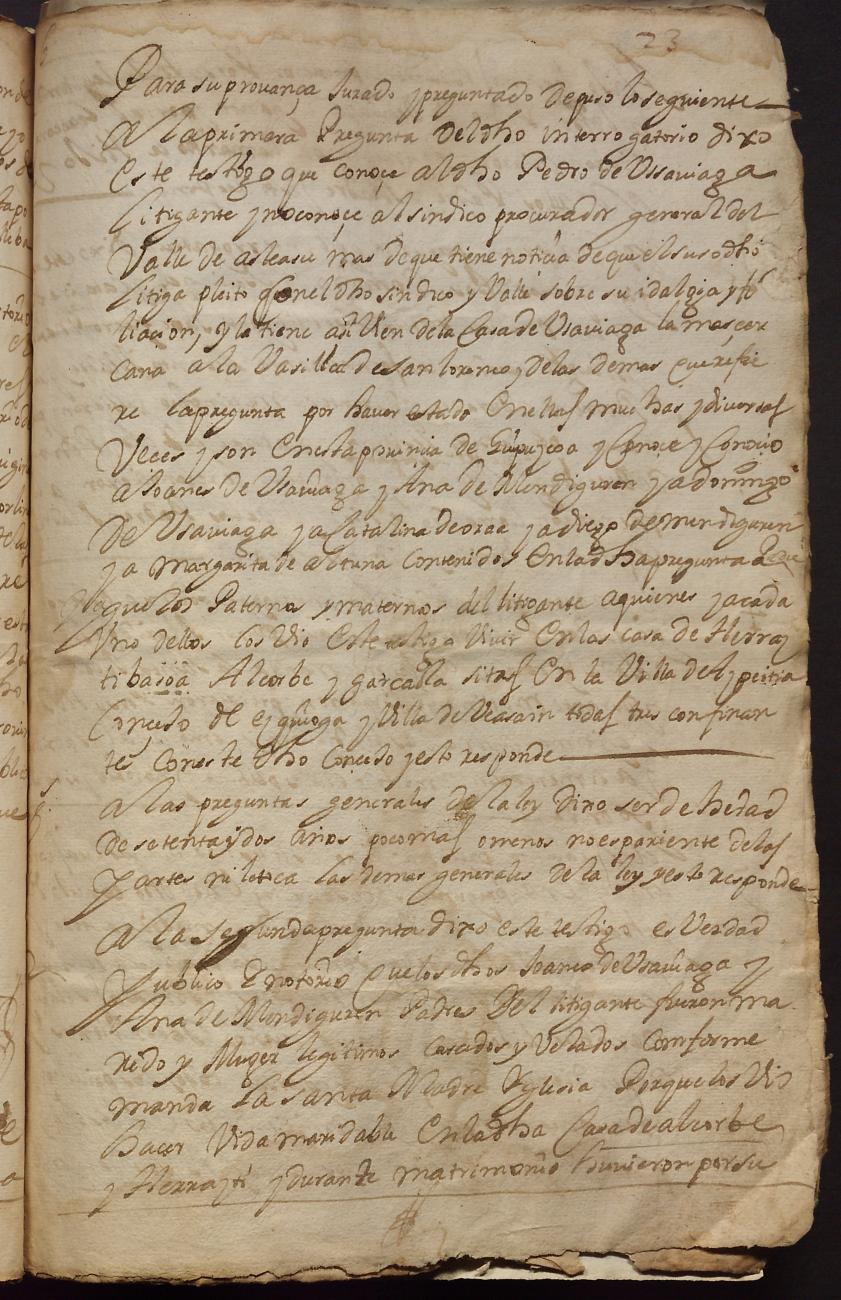 23
Para su provança Jurado y preguntado depuso lo seguiente
A la primera Pregunta del dho interrogatorio dixo
este testigo que conoçe al dho Pedro de Vsaviaga
litigante y no conoçe al sindico procurador general del
Valle de asteasu mas de que tiene noticia de que el suso dho
litiga pleito con el dho sindico y Valle sobre su idalgia y fi
liacion, y la tiene asi Vien de la Casa de Vsaviaga la mas çer
cana a la Vasilica de san lorenço y de las demas que refie
re la pregunta por haver estado en ellas muchas y diversas
Veces y son en esta provincia de Guipuzcoa y Conoce y Conocio
a Joanes de Vsaviaga y Ana de Mendiguren y a domingo
de Vsaviaga y a Catalina de oraa y a diego de mendiguren
y a margarita de altuna contenidos en la dha pregunta
aguelos Paternos y maternos del litigante a quienes y a cada
Vno dellos los Vio este testigo Vivir en las casa de Herraz
ti basoa Alcorbe y garcalla sitas en la Villa de Azpeitia
Conçejo de ezquioga y Villa de Veasain todas tres confinan
tes con este dho Conçejo y esto responde
A las preguntas generales de la ley dixo ser de hedad
de setenta y dos años poco mas o menos no es pariente de las
partes ni le toca las demas generales de la ley y esto responde
A la segunda pregunta dixo este testigo es Verdad
publico e notorio que los dhos Joanes de Vsaviaga y
Ana de Mendiguren Padres del litigante fueron ma
redo y Muger legitimos casados y Velados conforme
manda la santa Madre Yglesia Porque los Vio
hacer Vida maridable en la dha Casa de alcorbe
y Herrazti y durante matrimonio huvieron por su